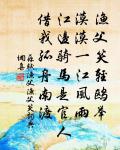 漁父笑輕鷗舉
漠漠一江風雨
江邊騎馬是官人
借我孤舟南渡
蘇軾漁父漁父笑